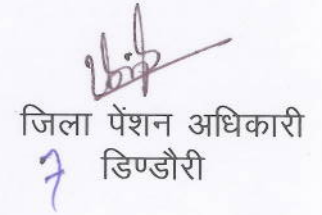 जिला पेंशन अधिकारी
डिण्डौरी